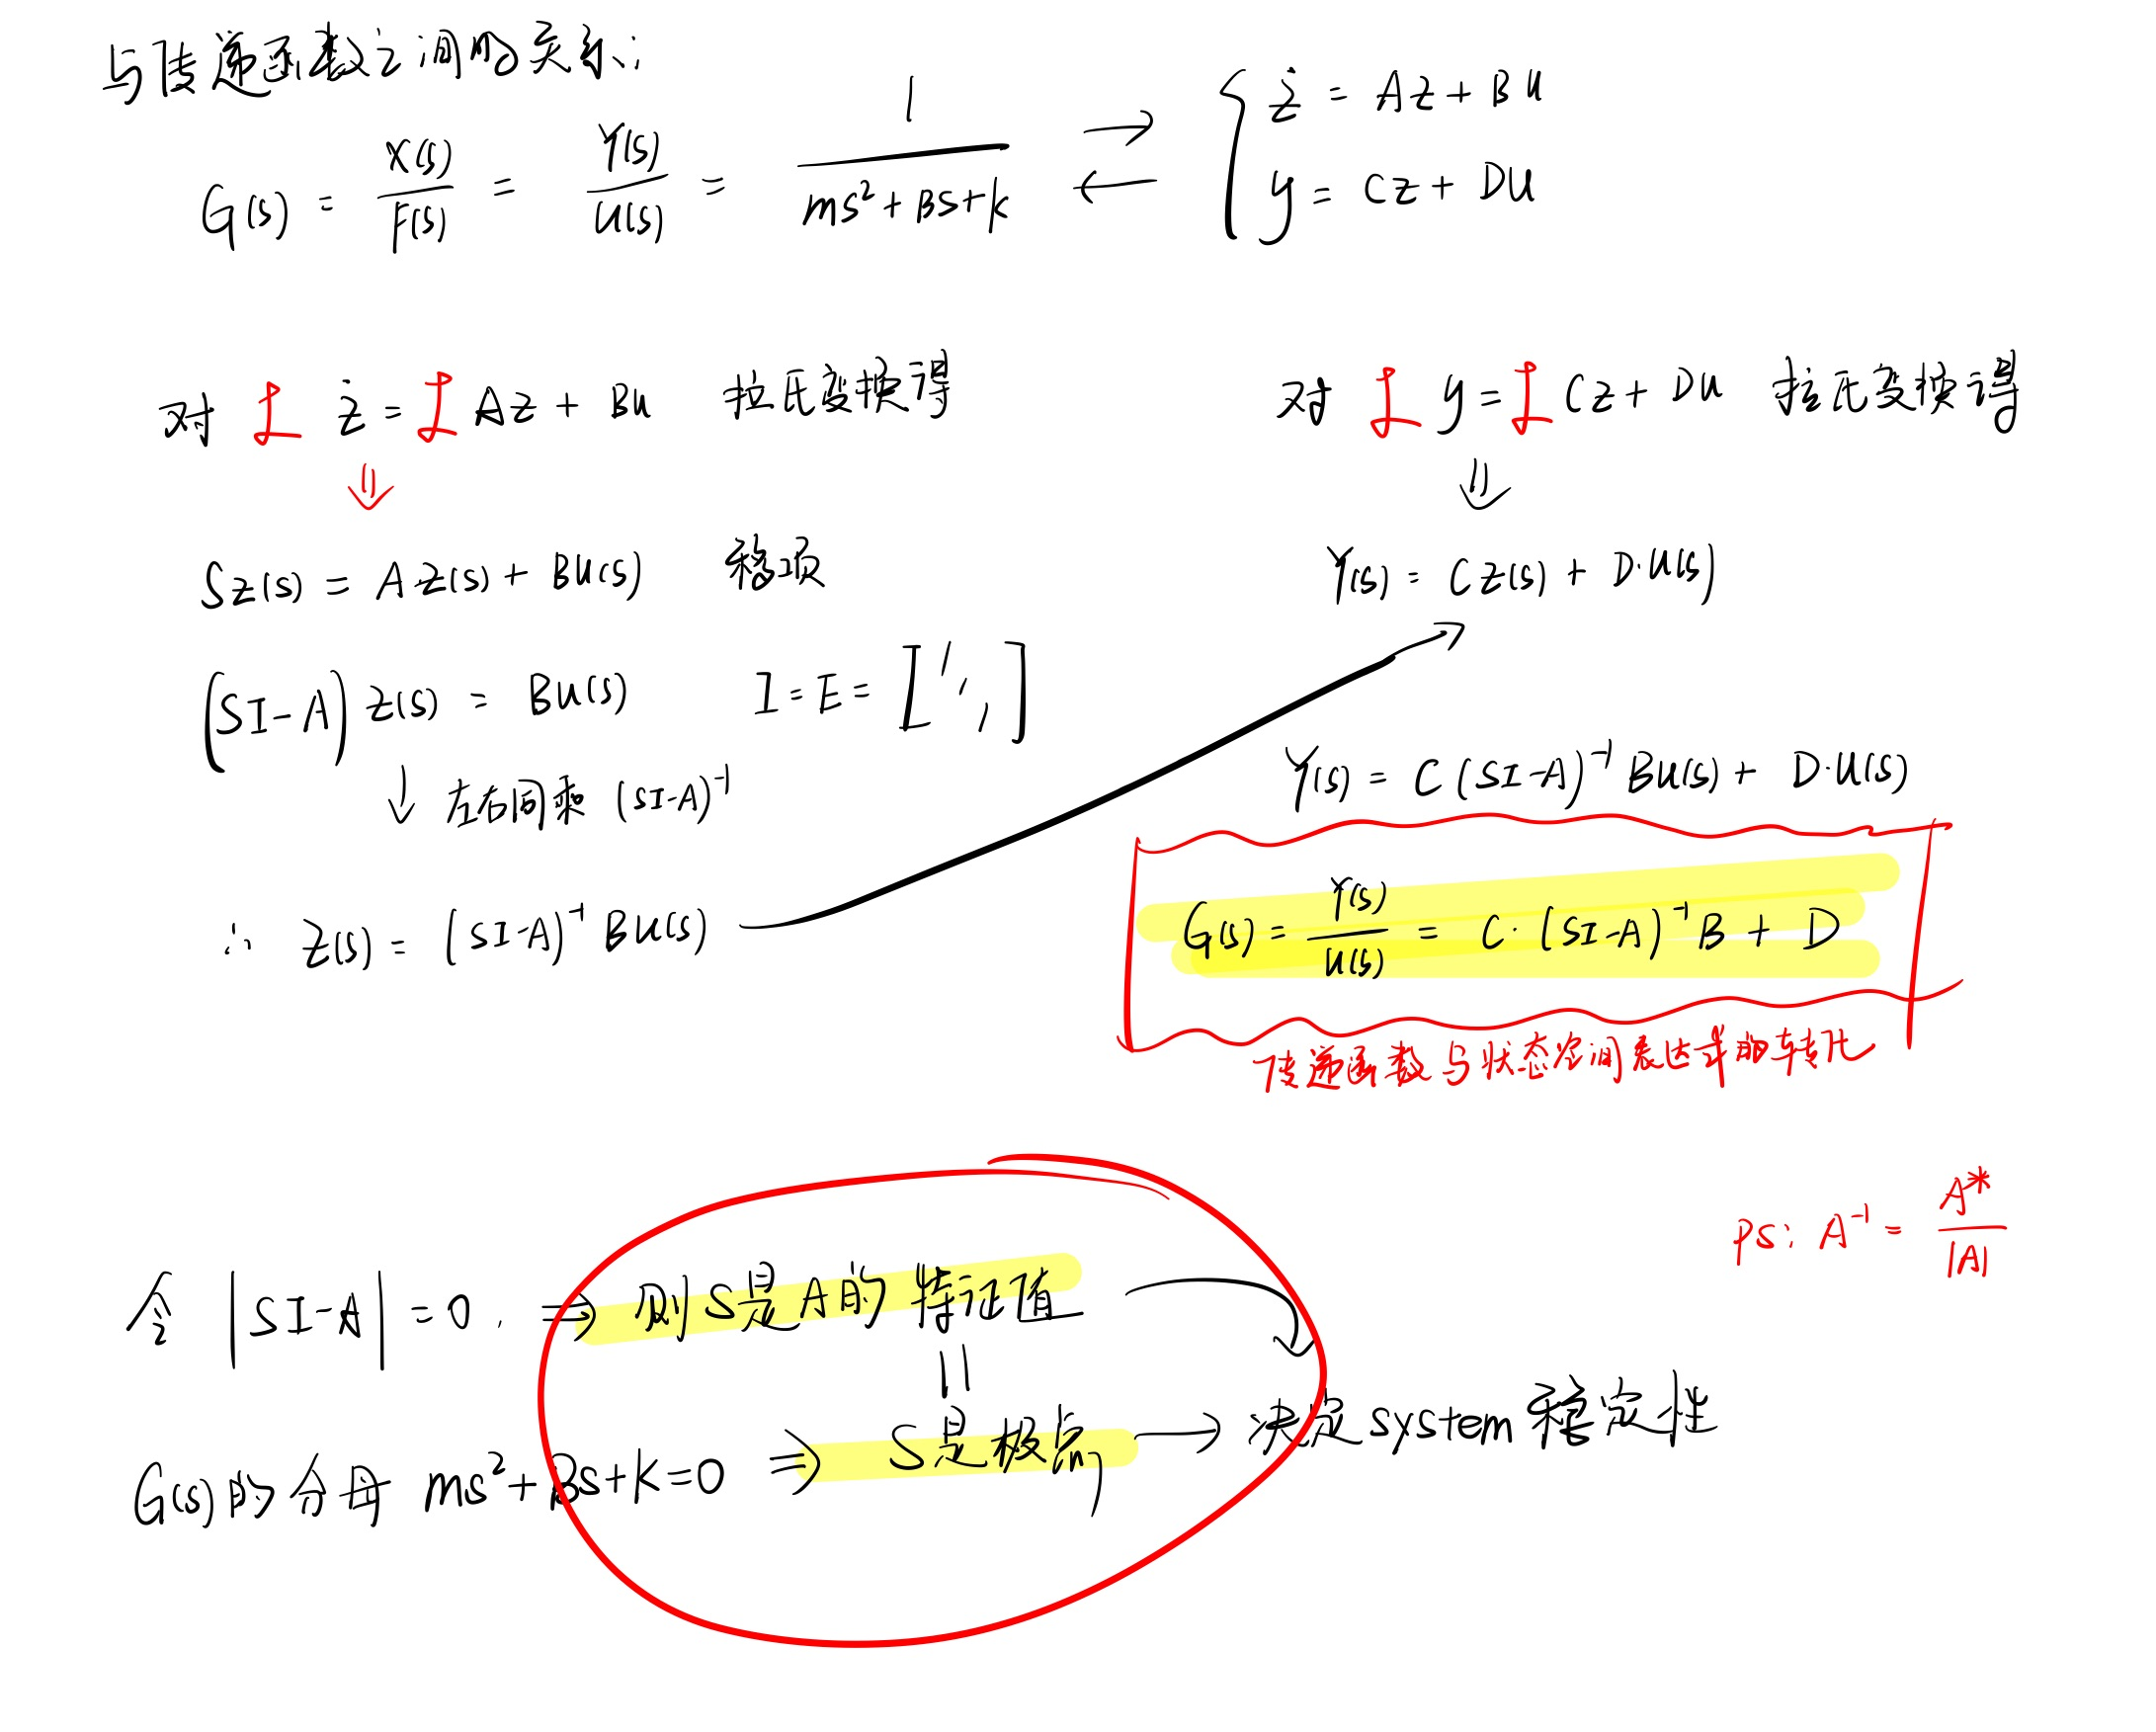 与传递函数之间的关系:
G(s) = X(s)/F(s) = Y(s)/U(s) = 1/(ms²+Bs+k) ⇄ { ż = Az + Bu
y = Cz + Du
对 ℒ ż = ℒ Az + Bu 拉氏变换得
⇓
Sz(s) = AZ(s) + BU(s) 移项
(SI-A) Z(s) = BU(s) I = E = [1 1 1]
↓ 左右同乘 (SI-A)⁻¹
∴ Z(s) = (SI-A)⁻¹ BU(s)
对 ℒ y = ℒ Cz + Du 拉氏变换得
⇓
Y(s) = CZ(s) + D·U(s)
Y(s) = C (SI-A)⁻¹ BU(s) + D·U(s)
G(s) = Y(s)/U(s) = C·(SI-A)⁻¹B + D
传递函数与状态空间表达式的转化
ps: A⁻¹ = A*/|A|
令 |SI-A| = 0. ⇒ 则S是A的特征值
||
G(s)的分母 ms²+Bs+k=0 ⇒ S是极点 → 决定system稳定性